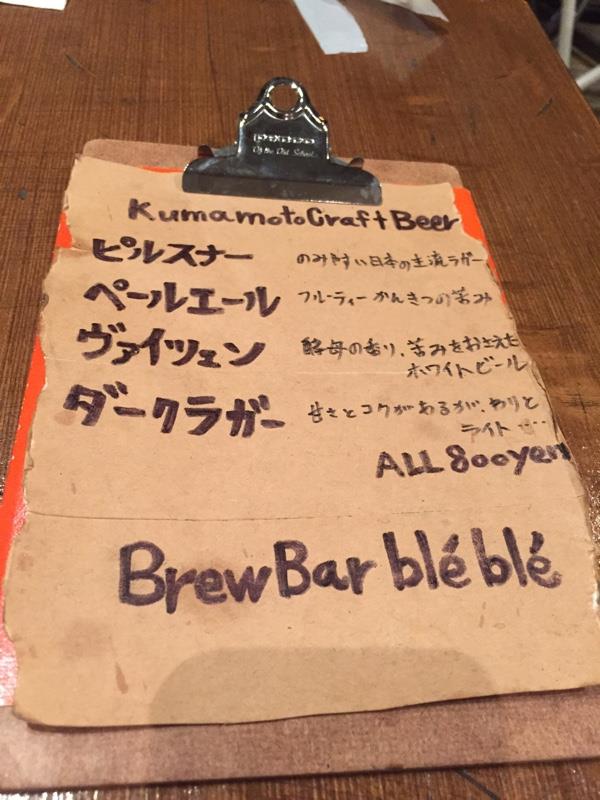 Of the Old School
Kumamoto Craft Beer
ピルスナー のみやすい日本の主流ラガー
ペールエール フルーティー かんきつの苦み
ヴァイツェン 酵母の香り、苦みをおさえた
ホワイトビール
ダークラガー 甘さとコクがあるが、わりと
ライト
ALL 800yen
Brew Bar blé blé